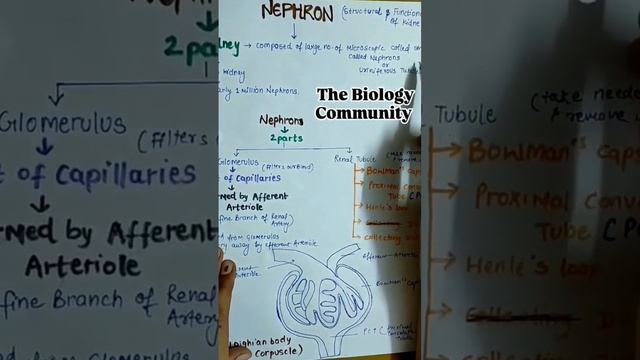 NEPHRON (Structural & Function
of Kidne
dney → composed of large no. of Microscopic called
called Nephrons
or
Uriniferous Tubul
Kidney
arly 1 Million Nephrons.
The Biology
Community
Nephrons
2 parts
Glomerulus
(Filters our Blood)
of Capillaries
med by Afferent
Arteriole
fine Branch of Renal
Artery
from Glomerulus
away by efferent Arteriole
Renal Tubule
Bowman's Cap
Proximal Conv
Tube (P
Henle's loop
collecting
Arteriole
efferent Arteriole
Bowman's Cap
P.C.T (Proximal
Convoluted
Tubule
lpighian body
corpuscle)
2 part
GLOMERULUS
(Filters
of Capillaries
med by Afferent
Arteriole
fine Branch of Renal
Artery
Tubule
(take neede
& remove
Bowman's Caps
Proximal Convo
Tube (P
Henle's loop